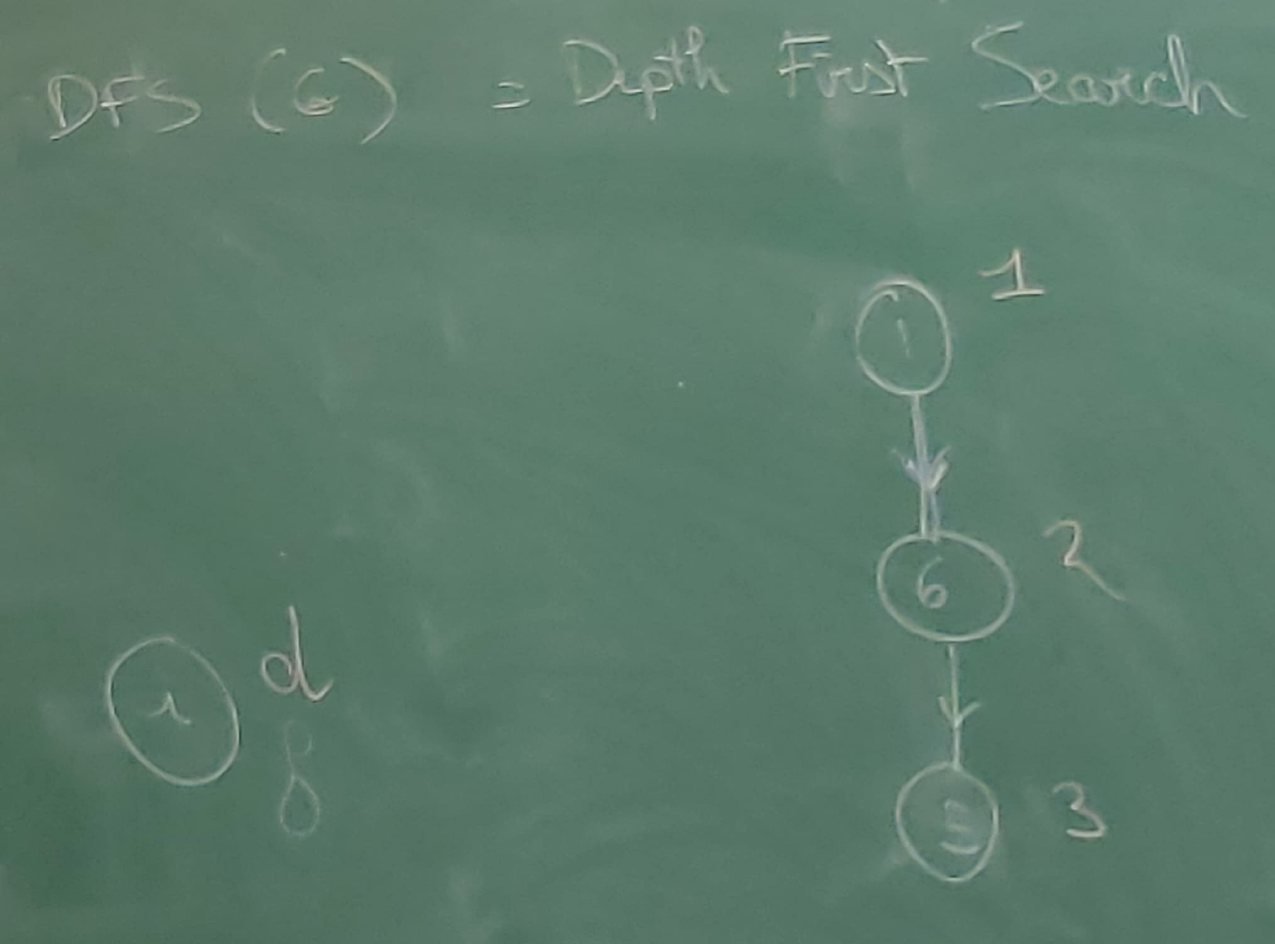 DFS (G) = Depth First Search
1
1
6
2
d
3